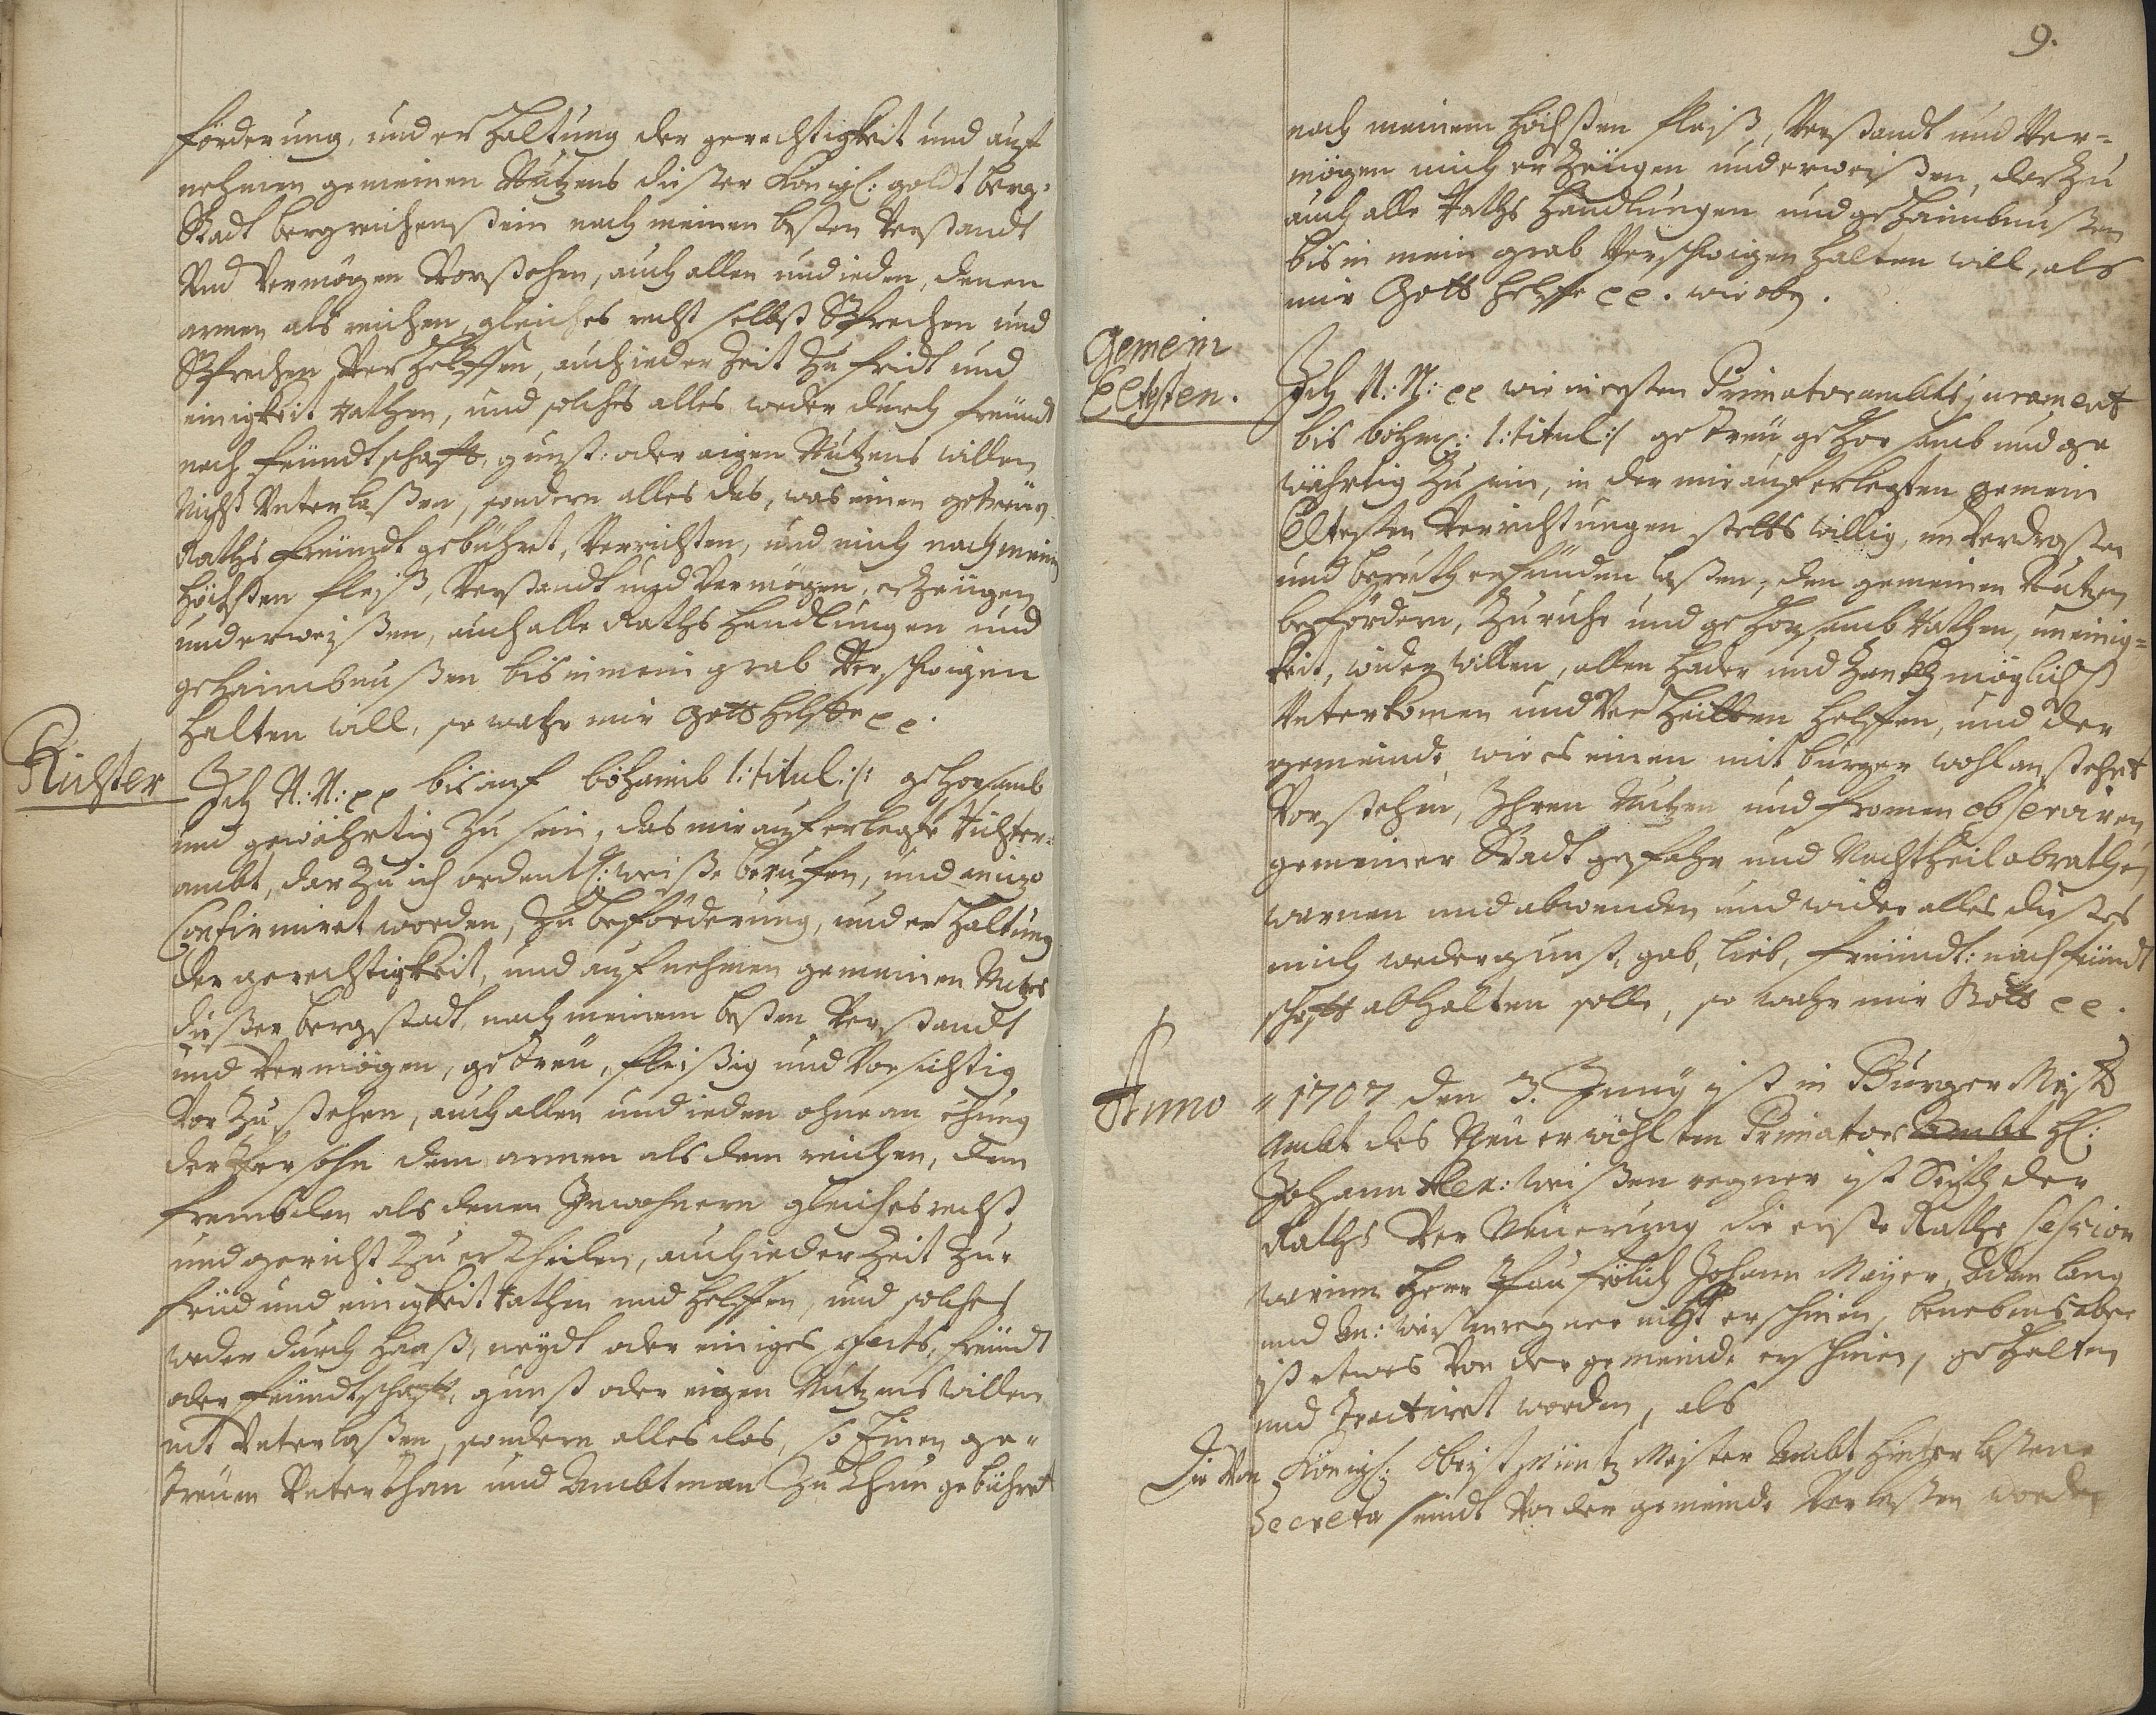 förderung, und erhaltung der gerechtigkeit und auf
nehmen gemeinen Nutzens dießer Königl: goldt berg-
Stadt bergreichenstein nach meinen besten Verstandt
Und Vermögen Vorstehen, auch allen und ieden, denen
armen als reichen, gleiches recht selbst Sprechen und
Sprechen Verhelffen, auch ieder Zeit Zu fridt und
einigkeit rathen, und solches alles weder durch freündt
noch feündtschafft, gunst: oder eigen Nutzens willen
Nicht Unterlaßen, sondern alles das, was einen getreüen
Raths freündt gebühret, Verrichten, und mich nach meinen
höchsten fleiß, Verstandt und Vermögen, erzeügen
und erweißen, auch alle Raths handlungen und
gehaimbnußen bis in mein grab Verschwigen
halten will, so wahr mir Gott helffe pp.
Richter
Ich N: N: pp bis auf böhaimb /: titul :/ gehorsamb
und gewährtig Zu sein, das mir auferlegte richter-
ambt, dar Zu ich ordentl: weiße beruffen, und anizo
Confirmiret worden, Zu beförderung, und erhaltung
der gerechtigkeit, und aufnehmen gemeinen Nutzes
dießer bergstadt, nach meinem besten Verstandt
und Vermögen, getreü, fleißig und Vorsichtig
Vor Zu stehen, auch allen und ieden ohne an ehung
der Persohn dem armen als dem reichen, dem
frembden als denen Inwohnern gleiches recht
und gericht Zu ertheilen, auch ieder Zeit Zu-
frid und einigkeit rathen und helffen, und solches
weder durch haaß, neydt oder einiges facts, freündt
oder feündtschafft, gunst oder eigen Nutzens willen
nit Unterlaßen, sondern alles das, so Einen ge-
treüen Unterthan und Ambtman Zu thun gebühret
9.
nach meinem höchsten fleiß, Verstandt und Ver-
mögen mich erzeügen und erweißen, darzu
auch alle raths handlungen und gehaimbnußen
bis in mein grab Verschwigen halten will, als
mir Gott helffe pp. wie oben.
Gemein
Eltesten.
Ich N: N: pp wie in ersten Primator ambts jurament
bis böhmen: /: titul :/ getreü gehorsamb und ge
währtig Zu sein, in der mir auferlegten gemein
Eltesten Verrichtungen stetts willig, unverdroßen
und bereith erfünden laßen, den gemeinen Nutzen
befördern, Zu ruhe und gehorsamb rathen, uneinig-
keit, wider willen, allen hader und Zanckh möglichst
Unterkomen und Verhütten helffen, und der
gemeinde, wie es einen mit burger wohl anstehet
Vorstehen, Ihren Nutzen und fromen observiren
gemeiner Stadt gefahr und Nachtheil abrathen,
warnen und abwenden und wider alles dießes
mich weder gunst, gab, lieb, freündt: noch feündt
schafft abhalten solle, so wahr mir Gott pp.
Anno
1707 den 3. Juny ist in Burger Mstr
Ambt des Neü erwöhlten Primatoris Ambt H:
Johann Alex: weißenregner ist Seith der
Raths Ver Neüerung die erste Raths session
worinn Herr Paul frölich Johann Mayer, Adam lang
und An: weissenregner nicht erschinen, benebens aber
ist etwas Von der gemeinde erschinen, gehalten
und tractiret worden, als
Die Von Königl: Obrist Müntz Meister Ambt hinterlaßene
Decreta seindt Vor der gemeinde Verleßen worden